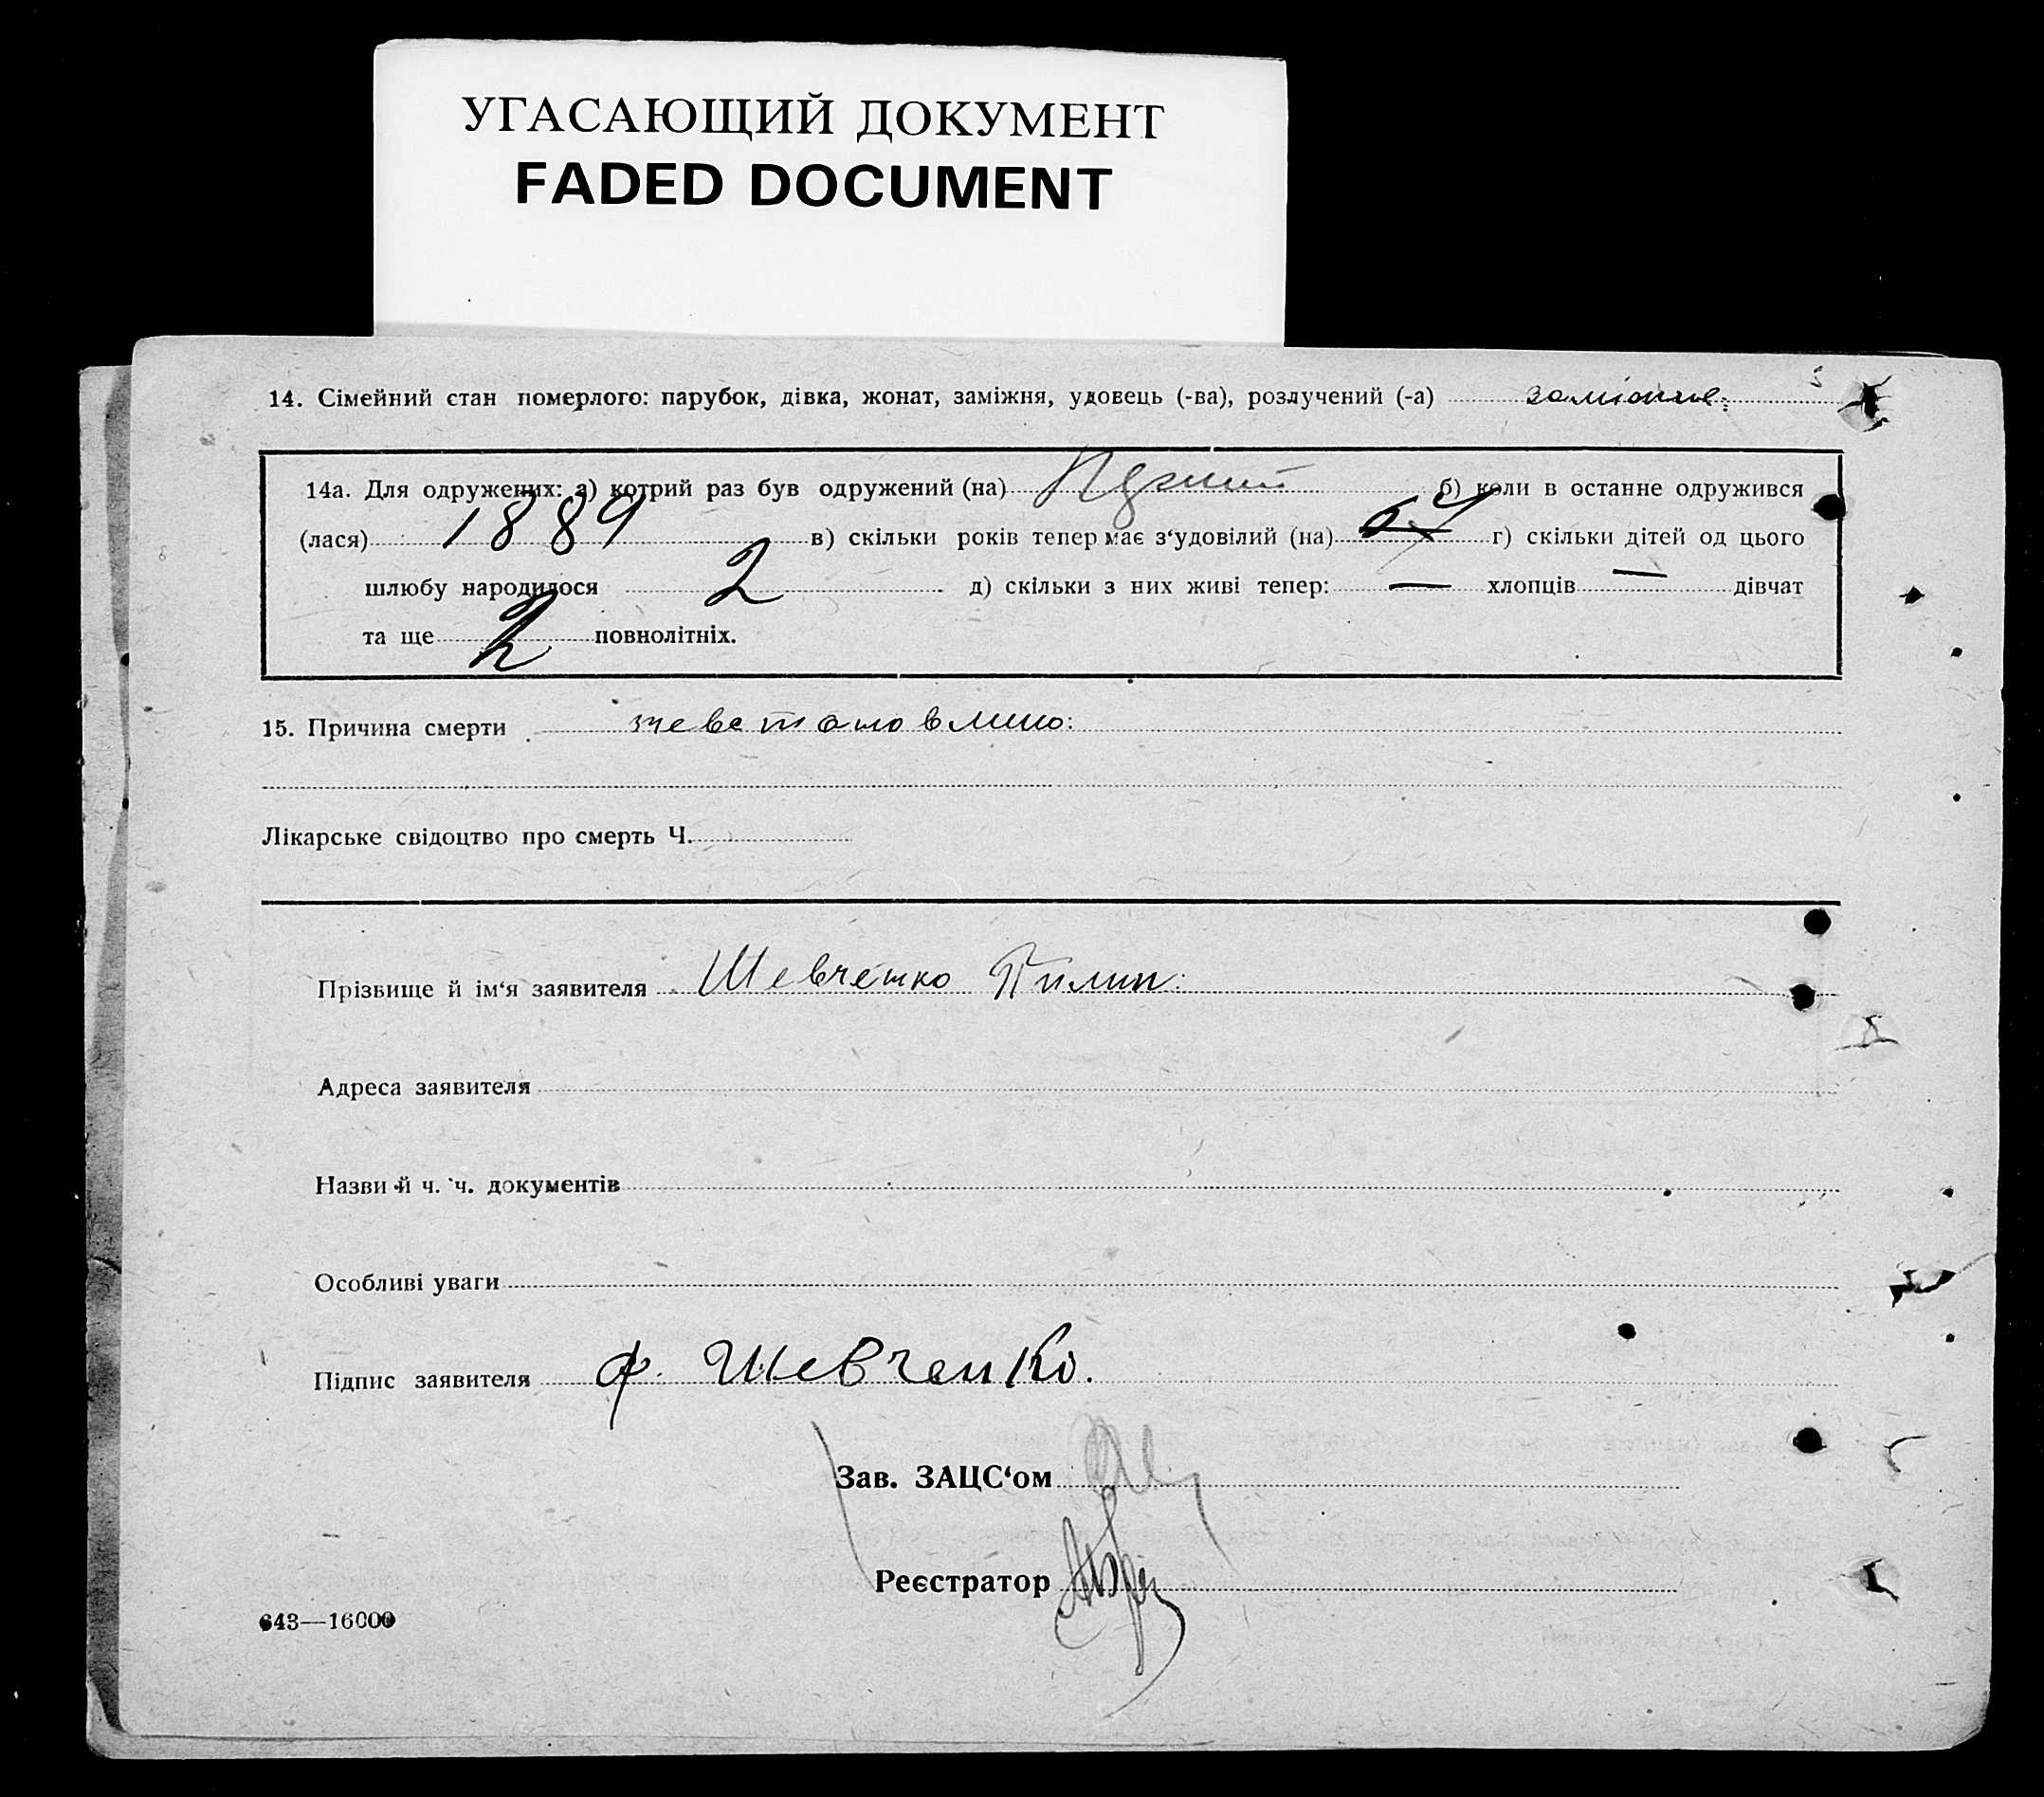 УГАСАЮЩИЙ ДОКУМЕНТ
FADED DOCUMENT
14. Сімейний стан померлого: парубок, дівка, жонат, заміжня, удовець (-ва), розлучений (-а) заміжня
14а. Для одружених: а) котрий раз був одружений (на) б) коли в останне одружився
(лася) 1889 в) скільки років тепер має з‘удовілий (на) 67 г) скільки дітей од цього
шлюбу народилося 2 д) скільки з них живі тепер: — хлопців — дівчат
та ще 2 повнолітніх.
15. Причина смерти невстановлино:
Лікарське свідоцтво про смерть Ч.
Прізвище й ім‘я заявителя Шевченко Пилип:
Адреса заявителя
Назви й ч. ч. документів
Особливі уваги
Підпис заявителя Ф. Шевченко.
Зав. ЗАЦС‘ом
Реєстратор
643—16000